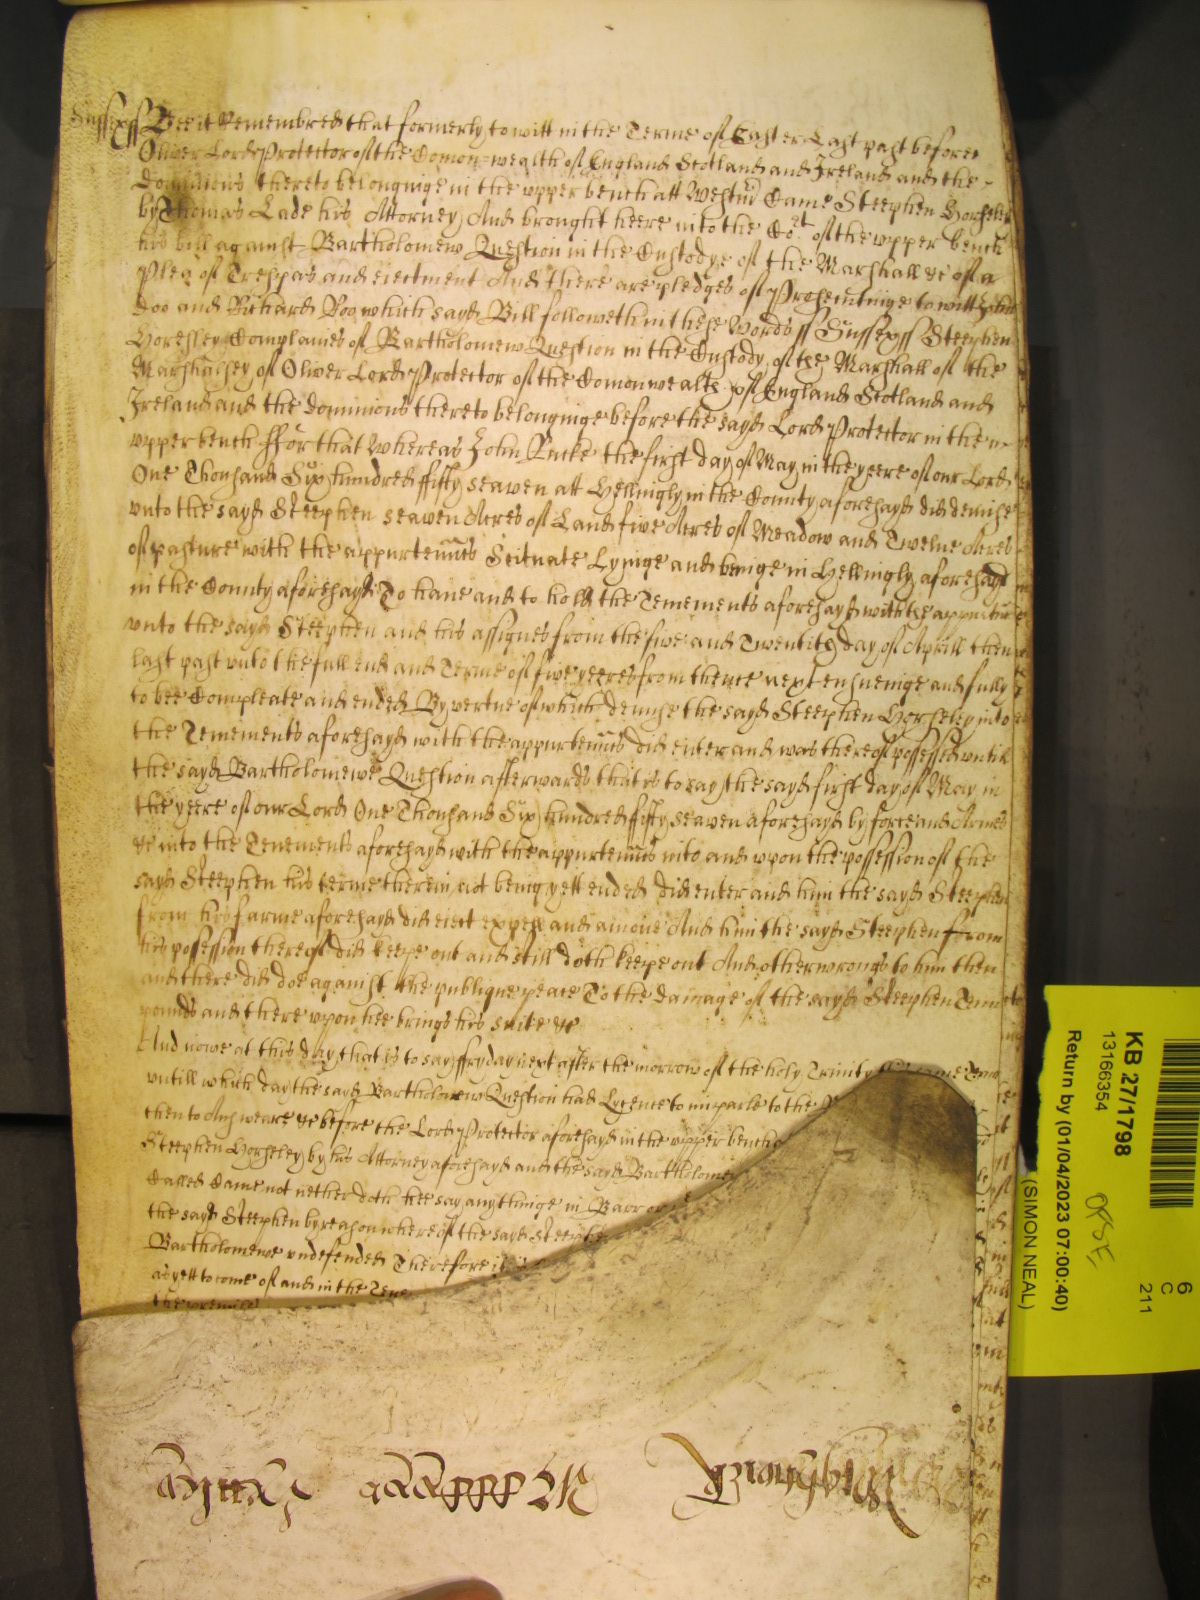 Sussex ss Bee it Remembred that formerly to witt in the Terme of Easter Last past before
Oliver Lord Protector of the Comon=wealth of England Scotland and Ireland and the
Dominions thereto belonginge in the upper bench att Westmr Came Steephen Horseley
by Thomas Lade his Attorney And brought heere into the Cort of the upper bench
his bill against Bartholomew Question in the Custodye of the Marshall &c of a
Plea of Trespas and eiectment And there are pledges of Prosecutinge to witt John
Doo and Richard Roo which sayd Bill followeth in these Words ss Sussex ss Steephen
Horseley Complaines of Bartholomew Question in the Custody of the Marshall of the
Marshalsey of Oliver Lord Protector of the Comonwealth of England Scotland and
Ireland and the dominions thereto belonginge before the sayd Lord Protector in the
upper bench ffor that Whereas John the first day of May in the yeere of our Lord
One Thousand Six hundred fifty seaven att Hellingly in the County aforesayd did demise
unto the sayd Steephen seaven Acres of Land five Acres of Meadow and Twelve Acres
of pasture with the appurtenncs Scituate Lyinge and beinge in Hellingly aforesayd
in the County aforesayd To have and to hold the Tenements aforesayd with the
unto the sayd Steephen and his assignes from the five and Twentith day of Aprill then
last past unto the full end and Terme of five yeeres from thence next ensueinge and fully
to bee Compleate and ended By vertue of which demise the sayd Steephen Horseley into
the Tenements aforesayd with the appurtenncs did enter and was thereof possessed until
the sayd Bartholomewe Question afterwards that is to say the sayd first day of May in
the yeere of our Lord One Thousand Six hundred fifty seaven aforesayd by force and Armes
&c into the Tenements aforesayd with the appurtenncs into and upon the possession of the
sayd Steephen his terme therein not being yett ended did enter and him the sayd Steephen
from his farme aforesayd did eiect expell and amove And him the sayd Steephen from
his possession thereof did keepe out and still doth keepe out And other wrongs to him then
and there did doe against the publique peace To the damage of the sayd Steephen Tenn
pounds and there upon hee brings his suite &c
And nowe at this day that is to say ffryday next after the morrow of the holy Trinity same Terme
untill which day the sayd Bartholomew Question had Lycence to imparle to the
then to Answeare &c before the Lord Protector aforesayd in the upper bench
Steephen Horseley by his Attorney aforesayd and the sayd Bartholomew
Called Came not nether doth hee say any thinge in Barr or
the sayd Steephen by reason whereof the sayd Steephen
Bartholomewe undefended Therefore it is
as yett to come of and in the Tene
the
KB 27/1798
13166354
Return by (01/04/2023 07:00:40)
(SIMON NEAL)
6
C
211